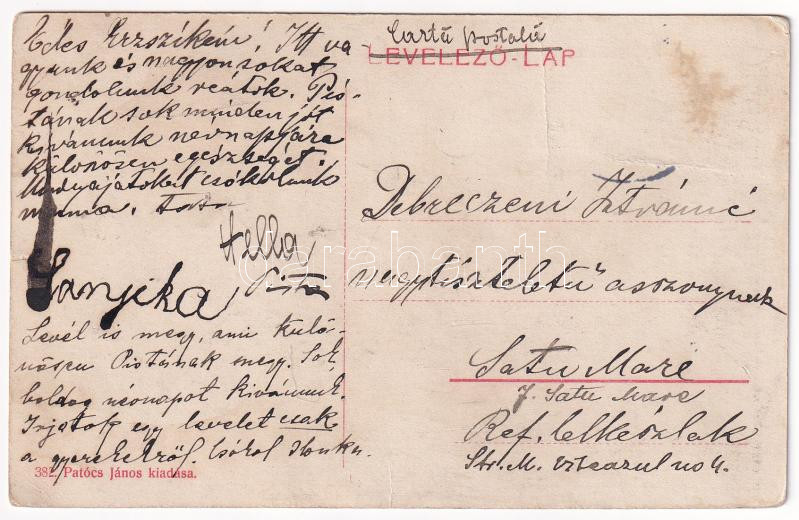 Édes Erzsikém! Itt va-
gyunk és nagyon sokat
gondolunk reátok. Pis-
tának sok minden jót
kivánunk névnapjára
különösen egészséget.
csókolunk
mama. Tata
Hella
Pista
Sanyika
Levél is megy, ami külö-
nösen Pistának megy. Sok
boldog névnapot kivánunk.
Irjatok egy levelet csak
a gyerekekről. Csókol Ilonka
382. Patócs János kiadása.
Cartă postală
LEVELEZŐ-LAP
Debreczeni Istvánné
nagytiszteletű asszonynak
Satu Mare
J. Satu Mare
Ref. lelkészlak
Str. M. Viteazul no 4.
darabanth